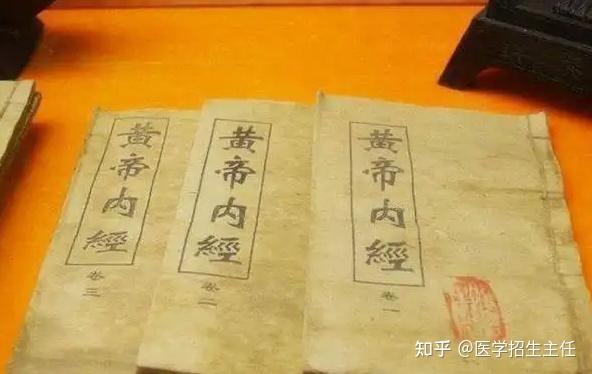 黄帝内經
卷一
黄帝内經
卷二
黄帝内經
卷三
知乎 @医学招生主任